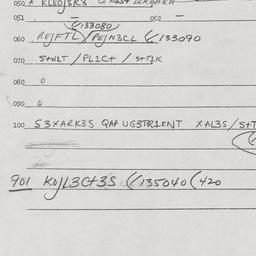 050 A
051 — 052 —
(133080)
060 REJFTL / PEJN3CL ((133090
070 S+WLT / PL1C+ / S+71K
080 0
090 0
100 S3XARK3S QAP UGSTR1KNT XAL3S / S+T
901 KOJL3C+3S ((135040 (420